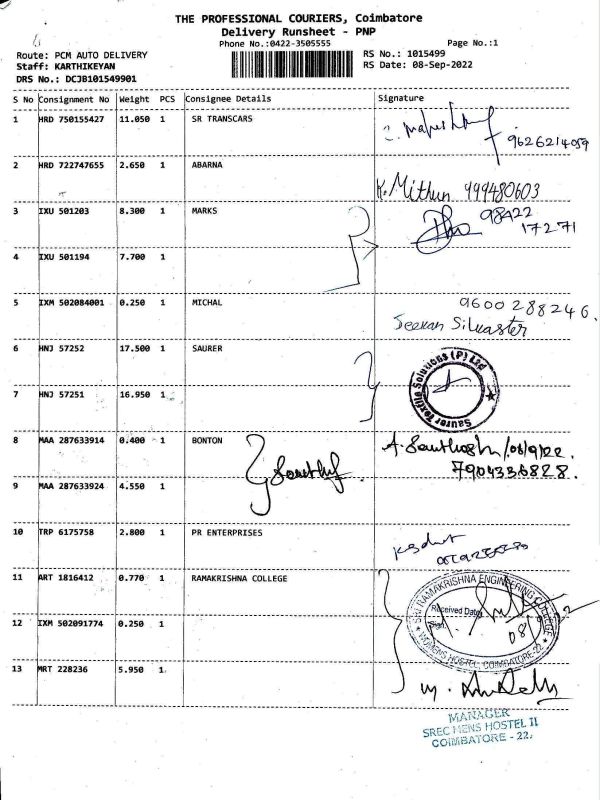 THE PROFESSIONAL COURIERS, Coimbatore
Delivery Runsheet - PNP
Phone No.:0422-3505555 Page No.:1
Route: PCM AUTO DELIVERY RS No.: 1015499
Staff: KARTHIKEYAN RS Date: 08-Sep-2022
DRS No.: DCJB101549901
S No Consignment No Weight PCS Consignee Details Signature
1 HRD 750155427 11.050 1 SR TRANSCARS
9626214059
2 HRD 722747655 2.650 1 ABARNA
K. Mithun 999480603
3 IXU 501203 8.300 1 MARKS 98422
17271
4 IXU 501194 7.700 1
5 IXM 502084001 0.250 1 MICHAL 9600288246.
Jeevan Silvaster
6 HNJ 57252 17.500 1 SAURER
Saurer Textile Solutions (P) Ltd
7 HNJ 57251 16.950 1
8 MAA 287633914 0.400 1 BONTON A. Santhosh /08/9/22.
7904336828.
9 MAA 287633924 4.550 1
10 TRP 6175758 2.800 1 PR ENTERPRISES
11 ART 1816412 0.770 1 RAMAKRISHNA COLLEGE
SRI RAMAKRISHNA ENGINEERING COLLEGE
Received Date
Sign.
08
WOMENS HOSTEL, COIMBATORE-22
12 IXM 502091774 0.250 1
13 MRT 228236 5.950 1
MANAGER
SREC MENS HOSTEL II
COIMBATORE - 22,